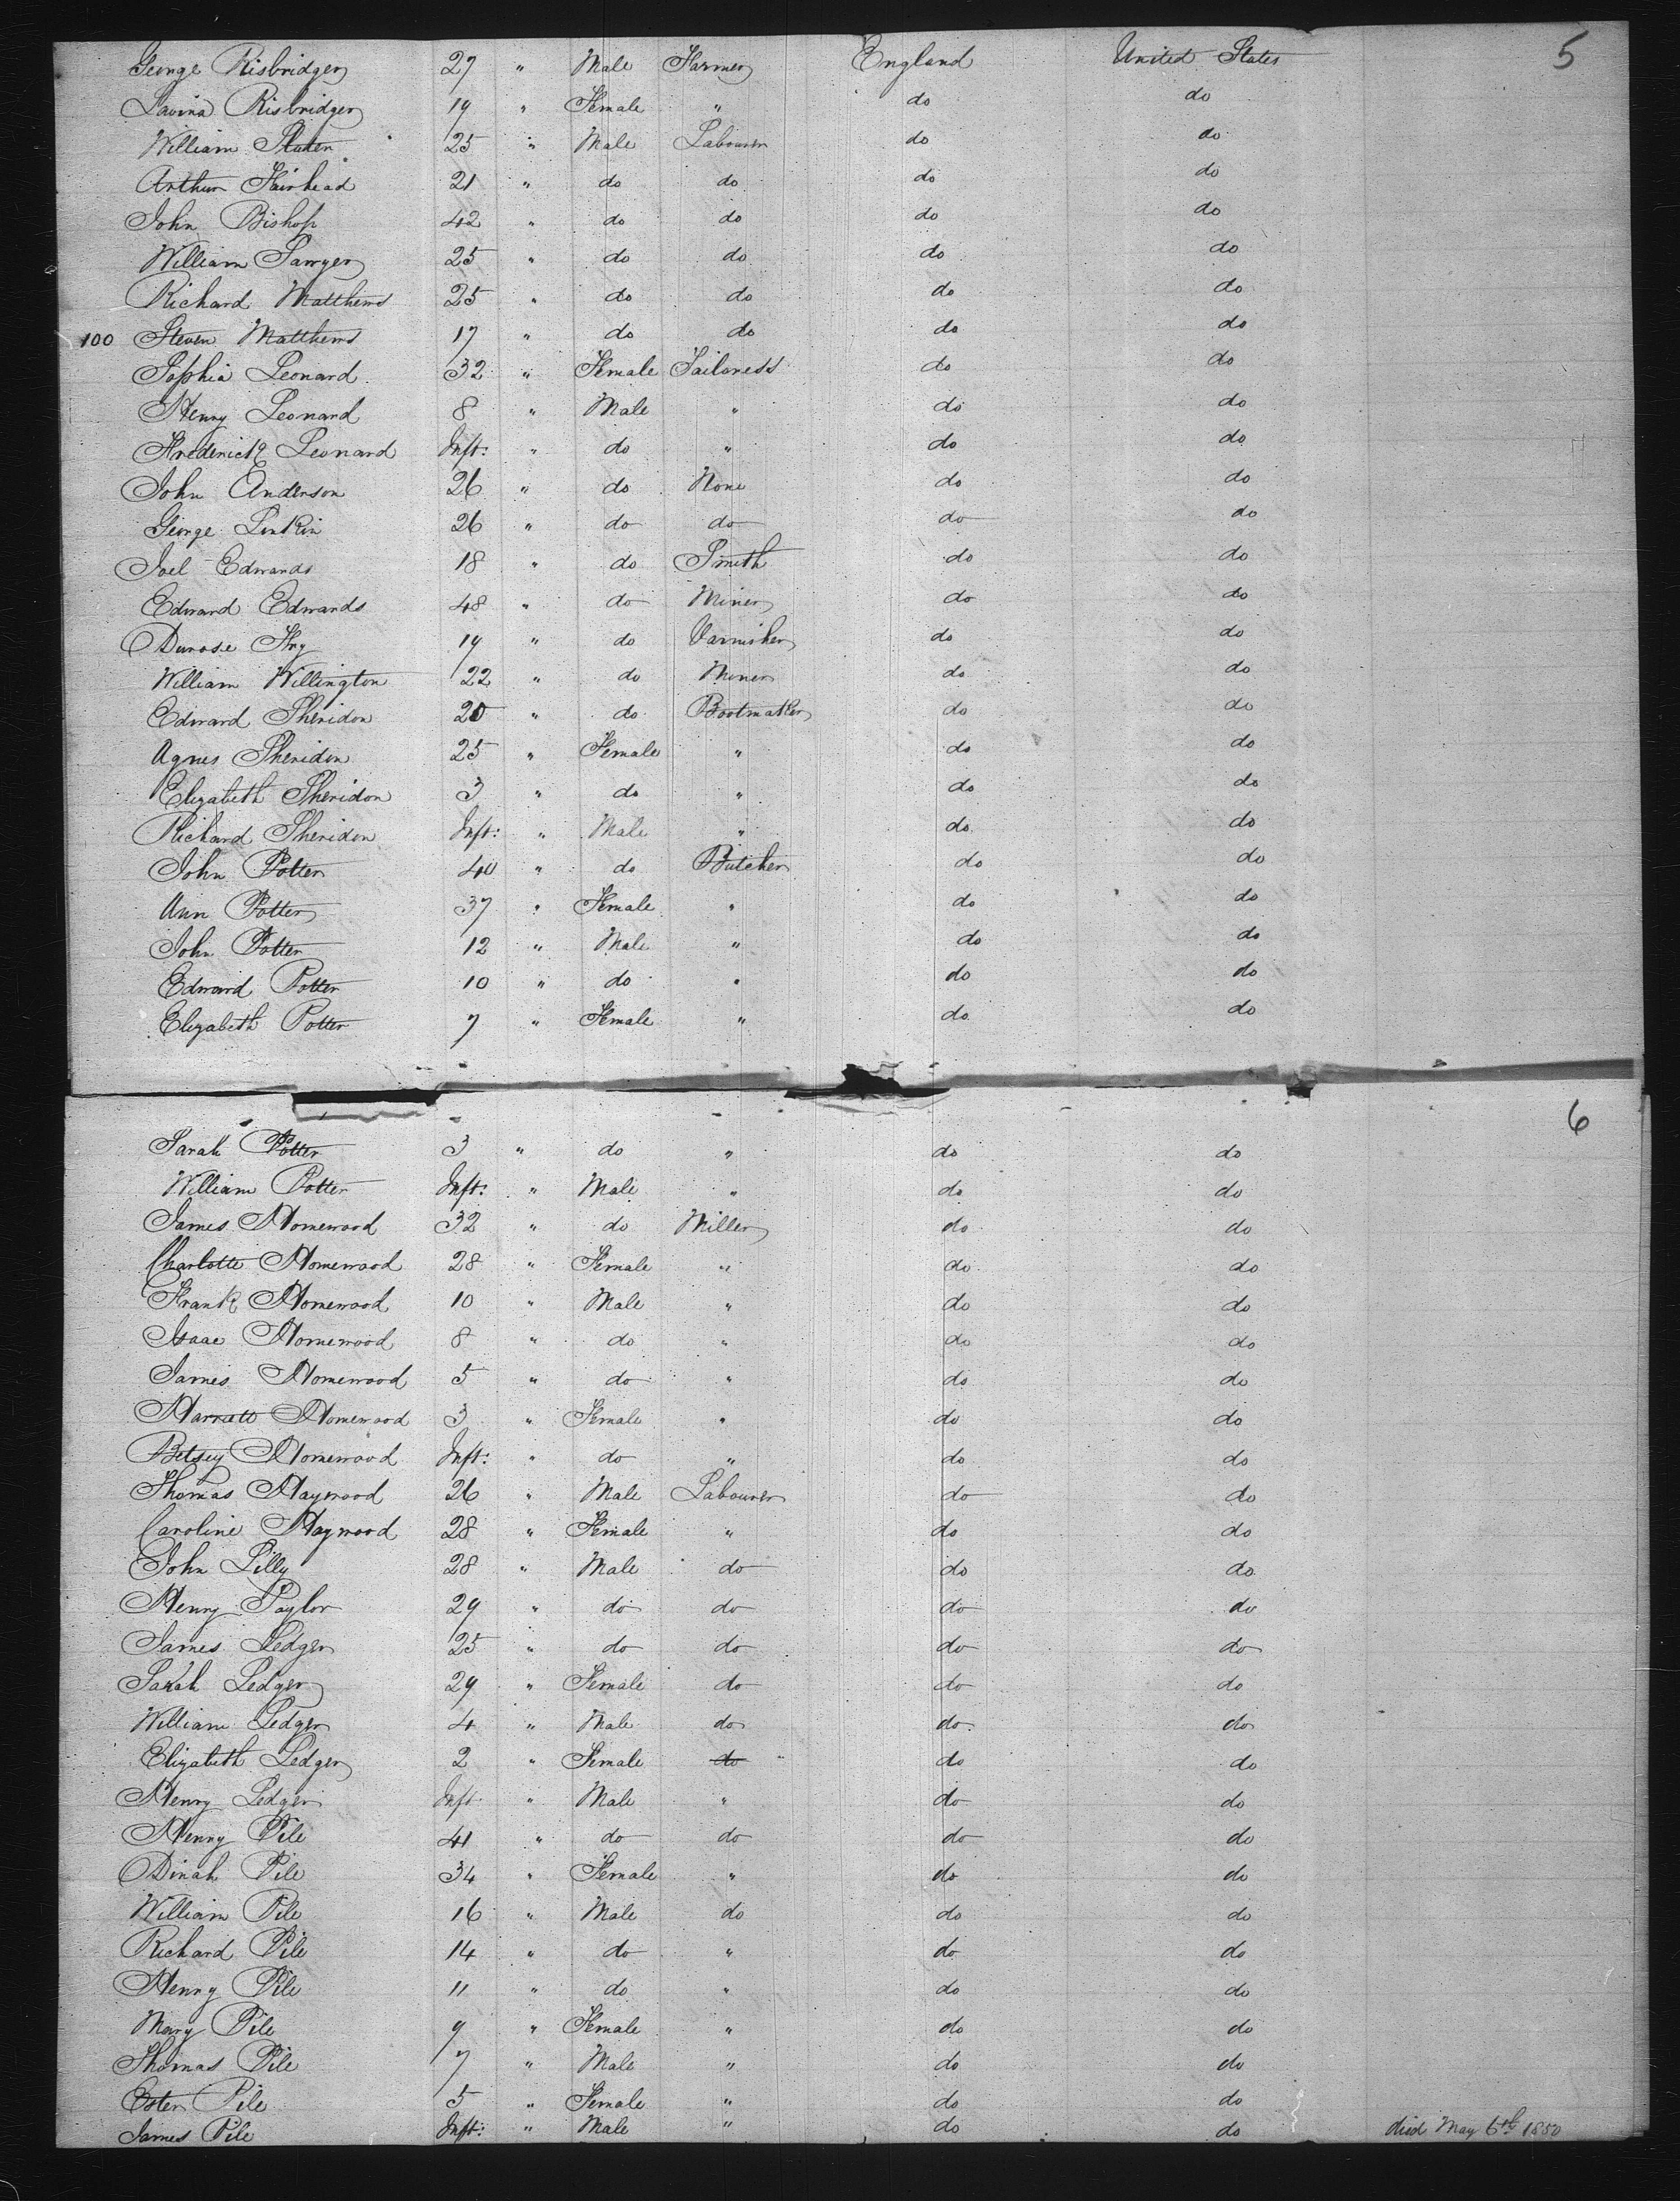 5
George Risbridger 27 " Male Farmer England United States
Lavina Risbridger 19 " Female " do do
William 25 " Male Labourer do do
Arthur Fairhead 21 " do do do do
John Bishop 42 " do do do do
William Sawyer 25 " do do do do
Richard Matthews 25 " do do do do
100 Steven Matthews 17 " do do do do
Sophia Leonard 32 " Female Tailoress do do
Henry Leonard 8 " Male " do do
Frederick Leonard Inft: " do " do do
John Anderson 26 " do None do do
George 26 " do do do do
Joel Edwards 18 " do Smith do do
Edward Edwards 48 " do Miner do do
Fry 19 " do Varnisher do do
William Willington 22 " do Miner do do
Edward Sheridon " do Bootmaker do do
Agnes Sheridon 25 " Female " do do
Elizabeth Sheridon 3 " do " do do
Richard Sheridon Inft: " Male " do do
John Potter 40 " do Butcher do do
Ann Potter 37 " Female " do do
John Potter 12 " Male " do do
Edward Potter 10 " do " do do
Elizabeth Potter 7 " Female " do do
6
Sarah Potter 3 " do " do do
William Potter Inft: " Male " do do
James Homewood 32 " do Miller do do
Charlotte Homewood 28 " Female " do do
Frank Homewood 10 " Male " do do
Isaac Homewood 8 " do " do do
James Homewood 5 " do " do do
Harriett Homewood 3 " Female " do do
Betsey Homewood Inft: " do " do do
Thomas Haywood 26 " Male Labourer do do
Caroline Haywood 28 " Female " do do
John Lilly 28 " Male do do do
Henry Taylor 29 " do do do do
James Ledger 25 " do do do do
Sarah Ledger 29 " Female do do do
William Ledger 4 " Male do do do
Elizabeth Ledger 2 " Female do " do do
Henry Ledger Inft " Male " do do
Henry Pile 41 " do do do do
Dinah Pile 34 " Female " do do
William Pile 16 " Male do do do
Richard Pile 14 " do " do do
Henry Pile 11 " do " do do
Mary Pile 9 " Female " do do
Thomas Pile 7 " Male " do do
Ester Pile 5 " Female " do do
James Pile Inft: " Male " do do died May 6th 1850